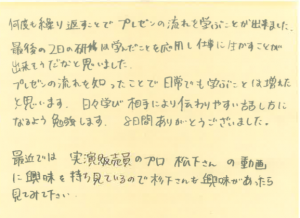 何度も繰り返すことでプレゼンの流れを学ぶことが出来ました。
最後の2日の研修は学んだことを応用し仕事に活かすことが
出来そうだなと思いました。
プレゼンの流れを知ったことで日常でも学ぶことは増えた
と思います。日々学び相手により伝わりやすい話し方に
なるよう勉強します。8日間ありがとうございました。
最近では 実演販売員のプロ 松下さん の動画
に興味を持ち見ているので杉下さんも興味があったら
見てみて下さい。